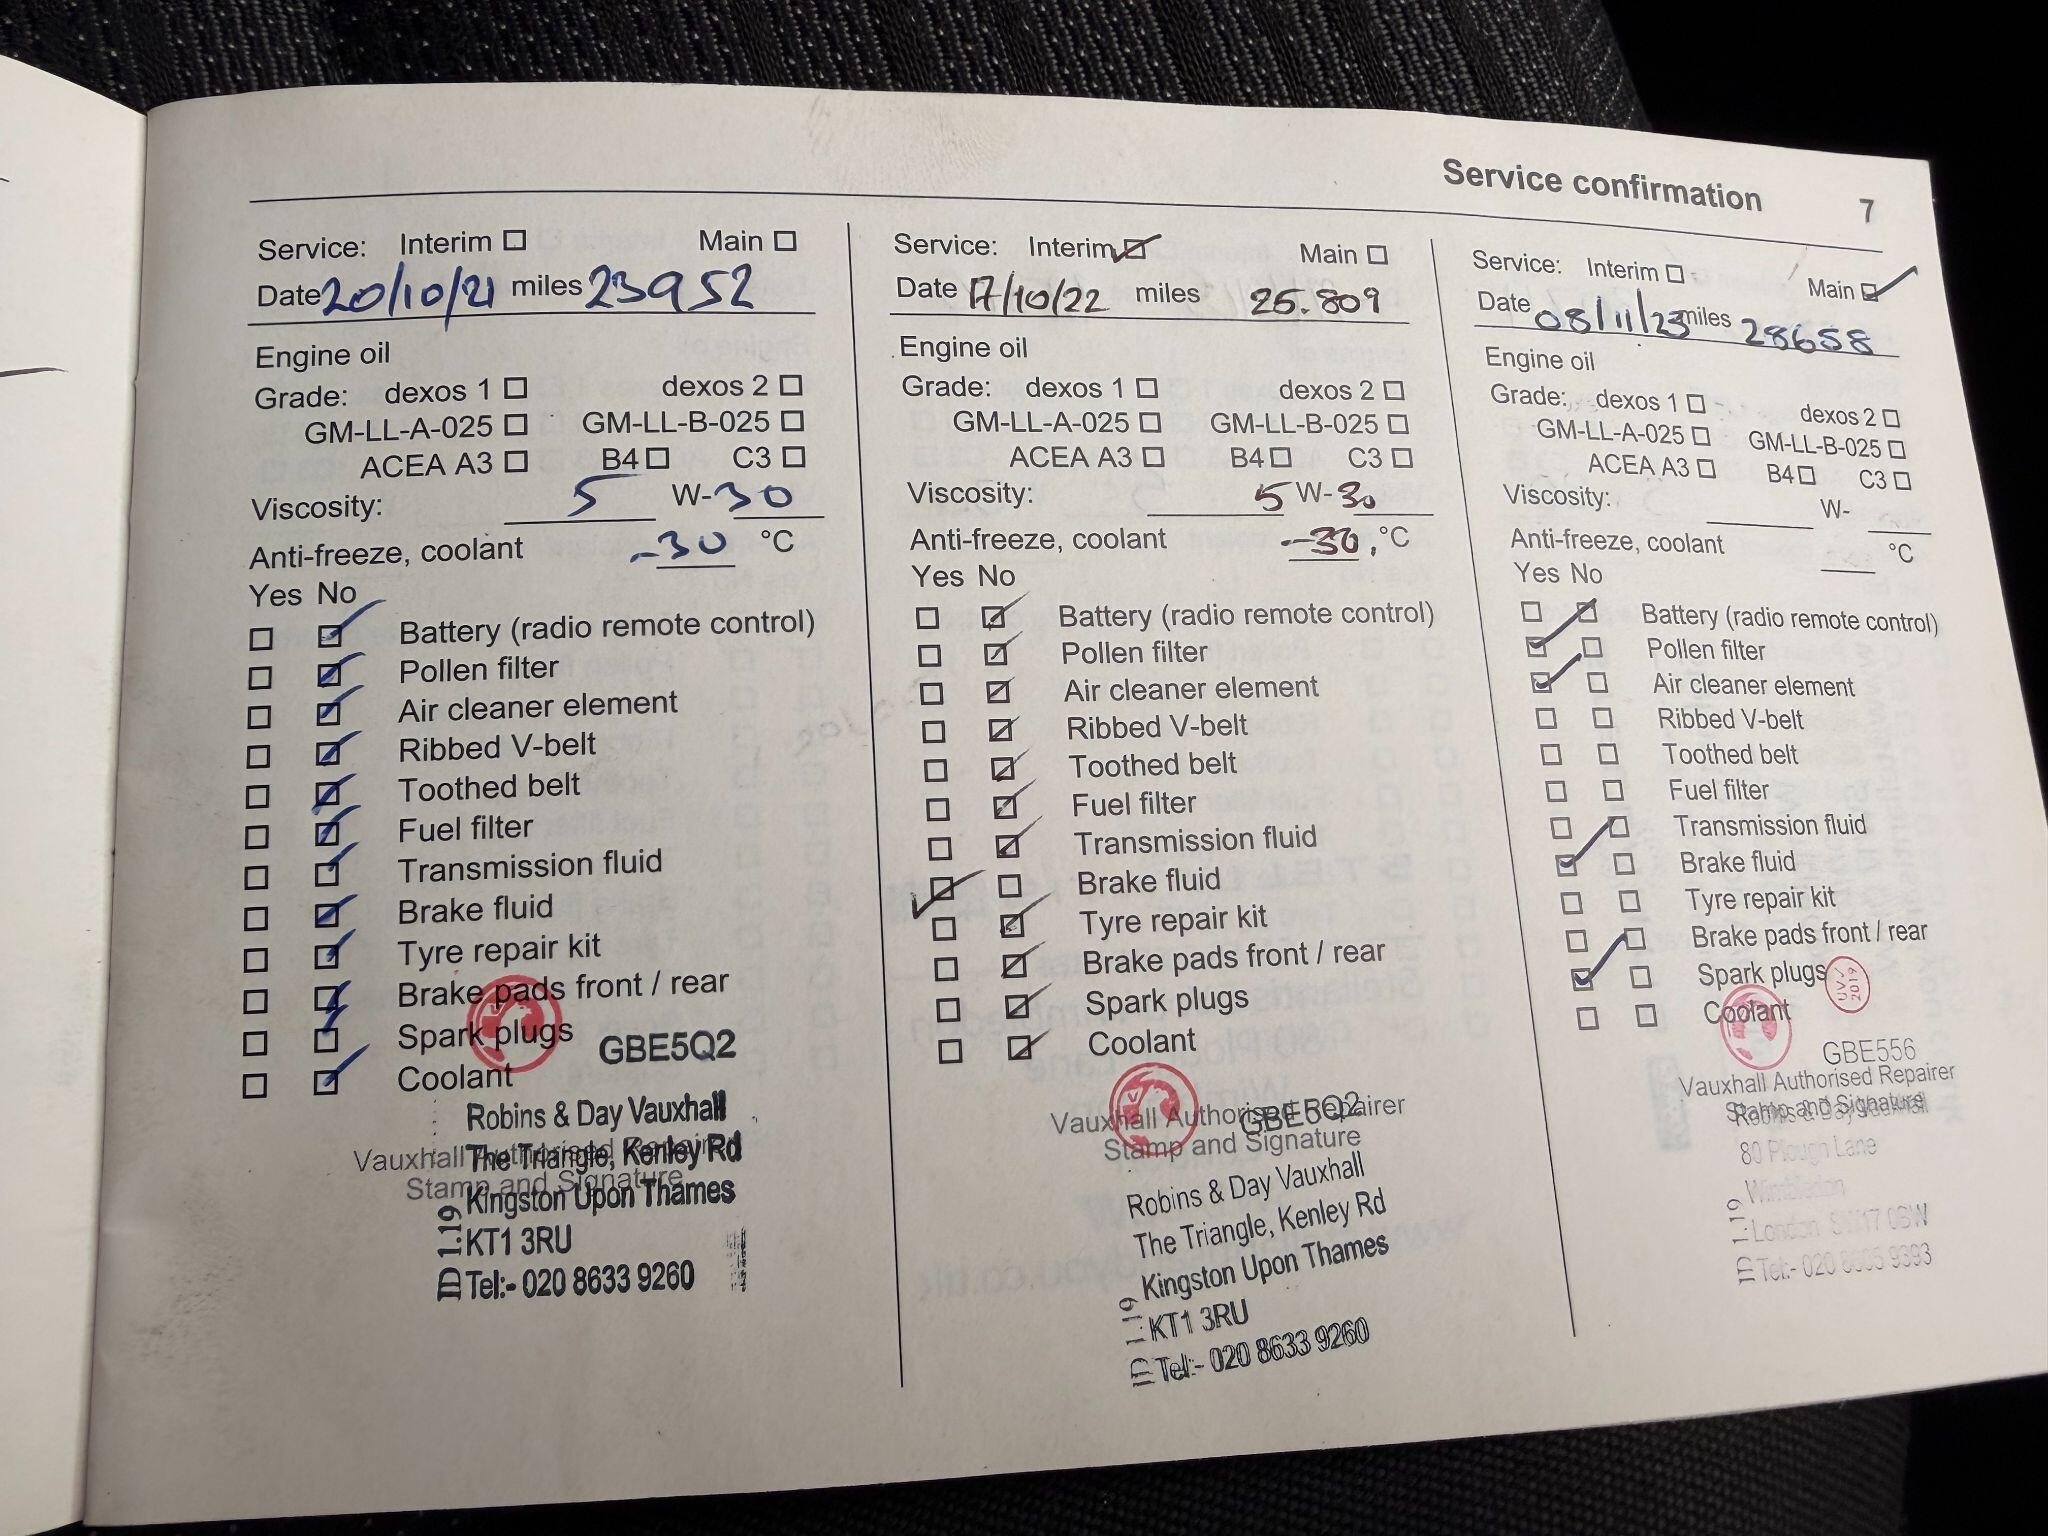 Service confirmation 7
Service: Interim Main
Date 20/10/21 miles 23952
Engine oil
Grade: dexos 1 dexos 2
GM-LL-A-025 GM-LL-B-025
ACEA A3 B4 C3
Viscosity: 5 W-30
Anti-freeze, coolant -30 °C
Yes No
Battery (radio remote control)
Pollen filter
Air cleaner element
Ribbed V-belt
Toothed belt
Fuel filter
Transmission fluid
Brake fluid
Tyre repair kit
Brake pads front / rear
Spark plugs
GBE5Q2
Coolant
Robins & Day Vauxhall
Vauxhall Authorised Repairer
The Triangle, Kenley Rd
Stamp and Signature
Kingston Upon Thames
KT1 3RU
Tel:- 020 8633 9260
ID 1.19
Service: Interim Main
Date 17/10/22 miles 25.809
Engine oil
Grade: dexos 1 dexos 2
GM-LL-A-025 GM-LL-B-025
ACEA A3 B4 C3
Viscosity: 5 W-30
Anti-freeze, coolant -30. °C
Yes No
Battery (radio remote control)
Pollen filter
Air cleaner element
Ribbed V-belt
Toothed belt
Fuel filter
Transmission fluid
Brake fluid
Tyre repair kit
Brake pads front / rear
Spark plugs
Coolant
Vauxhall Authorised Repairer
GBE5Q2
Stamp and Signature
Robins & Day Vauxhall
The Triangle, Kenley Rd
Kingston Upon Thames
KT1 3RU
Tel:- 020 8633 9260
Service: Interim Main
Date 08/11/23 miles 28658
Engine oil
Grade: dexos 1 dexos 2
GM-LL-A-025 GM-LL-B-025
ACEA A3 B4 C3
Viscosity: W-
Anti-freeze, coolant °C
Yes No
Battery (radio remote control)
Pollen filter
Air cleaner element
Ribbed V-belt
Toothed belt
Fuel filter
Transmission fluid
Brake fluid
Tyre repair kit
Brake pads front / rear
Spark plugs
UVJ
2019
Coolant
GBE556
Vauxhall Authorised Repairer
Stamp and Signature
Robins & Day Vauxhall
80 Plough Lane
Wimbledon
London SW17 0BW
Tel:- 020 8605 9393